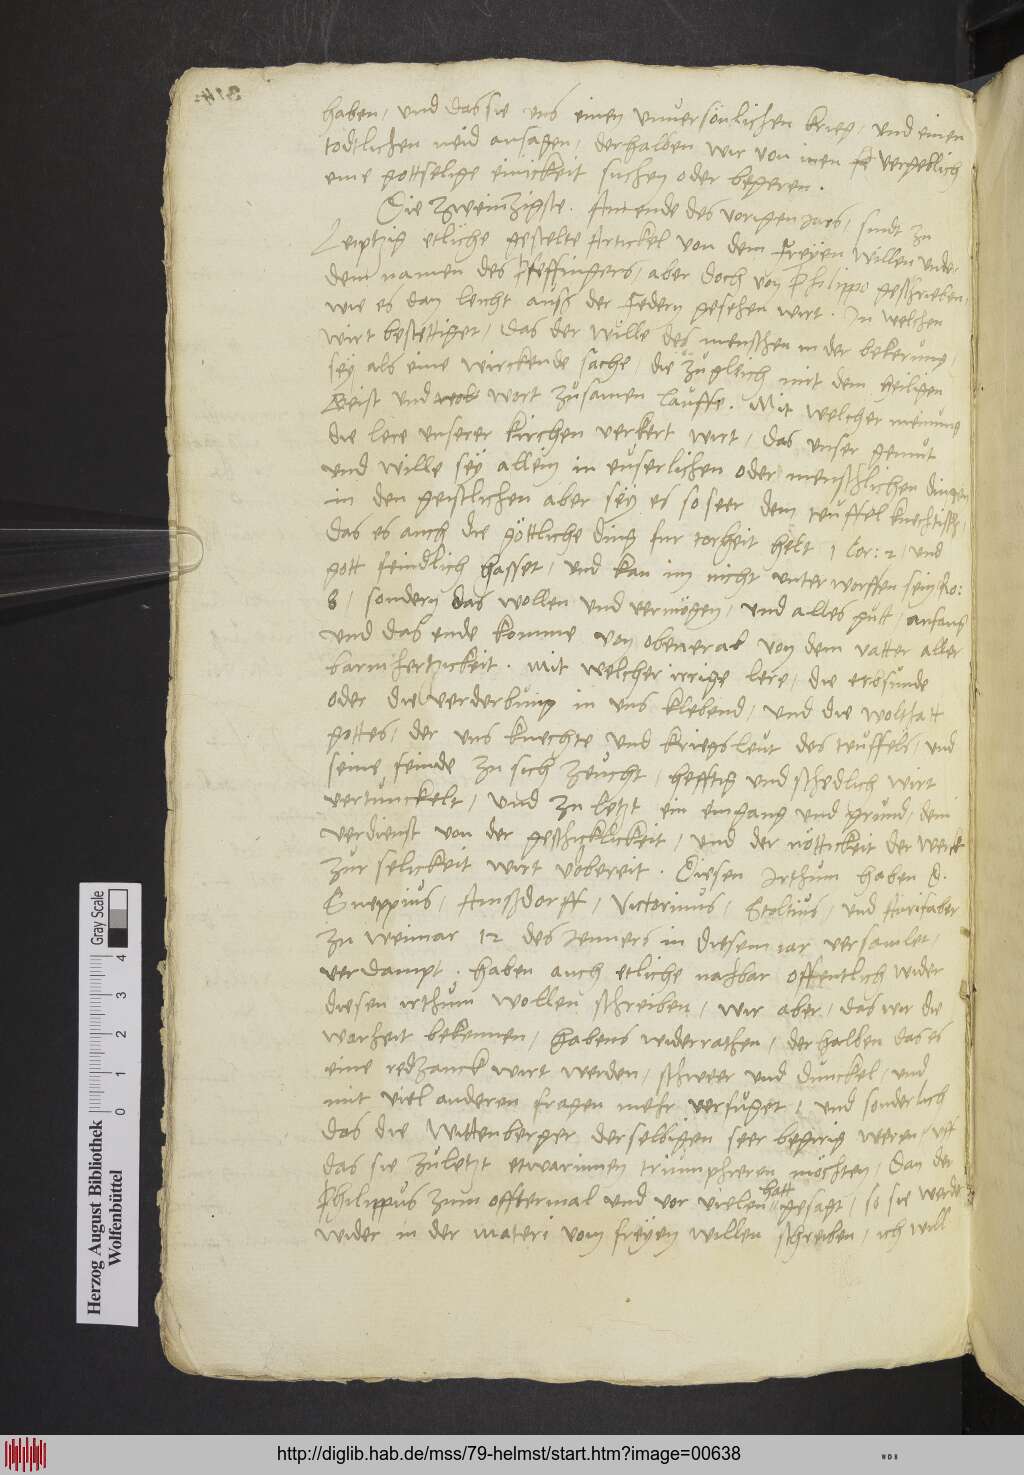 haben / und das sie uns einen unversönlichen krieg / und einen
tödtlichen neid ansagen / derhalben wir von inen vergeblich
eine gottselige einickeit suchen oder begeren .
Die Zweintzigste . Am ende des vorigen Jars / sindt zu
Leiptzig etliche gestelte Artickel von dem freyen willen under
dem namen des Pfeffingers / aber doch von Philippo geschrieben /
wie es dan leicht auß der federn gesehen wirt . In welchen
wirt bestettiget / das der wille des menschen in der bekerung /
sey als eine wirckende sache / die zugleich mit dem heiligen
Geist und wort zusamen lauffe . Mit welcher meinung
die lere unserer kirchen verkert wirt / das unser gemüt
und wille sey allein in euserlichen oder menschlichen dingen
in den geistlichen aber sey es so seer dem teuffel knechtisch /
das es auch die göttliche ding fur torheit helt 1 Cor: 2 / und
gott feindlich hasset / und kan im nicht unterworffen sein Ro:
8 / sondern das wollen und vermögen / und alles gutt / anfang
und das ende komme von obenerab von dem vatter aller
barmhertzickeit . Mit welcher irrige lere / die erbsunde
oder die verderbung in uns klebend / und die wolthatt
gottes / der uns knechte und kriegsleut des teuffels / und
seine feinde zu sich zeucht / hefftig und schedlich wirt
vertunckelt / und zu letzt ein eingang und grund / dem
verdienst von der geschicklickeit / und der nöttickeit der werck
zur selickeit wirt vobereit . Diesen Irthum haben D.
Sneppius / Amßdorff / Victorinus / Stoltius / und Aurifaber
zu Weimar 12 des Jenners in diesem iar versamlet /
verdampt . haben auch etliche nahbar offentlich wider
diesen irthum wollen schreiben / wir aber / das wir die
warheit bekennen / habens widerrathen / derhalben das es
eine redzanck wirt werden / schweer und dunckel / und
mit viel anderen fragen mehr verfuget / und sonderlich
das die Wittenberger derselbigen seer begirig weren / uff
das sie zuletzt etwarinnen triumphieren möchten / Dan der
Philippus zum offtermal und vor vielen hatt gesagt / so sie werde
wider in der materi vom freyen willen schreiben / ich will
Herzog August Bibliothek
Wolfenbüttel
Gray Scale
0 1 2 3 4
http://diglib.hab.de/mss/79-helmst/start.htm?image=00638